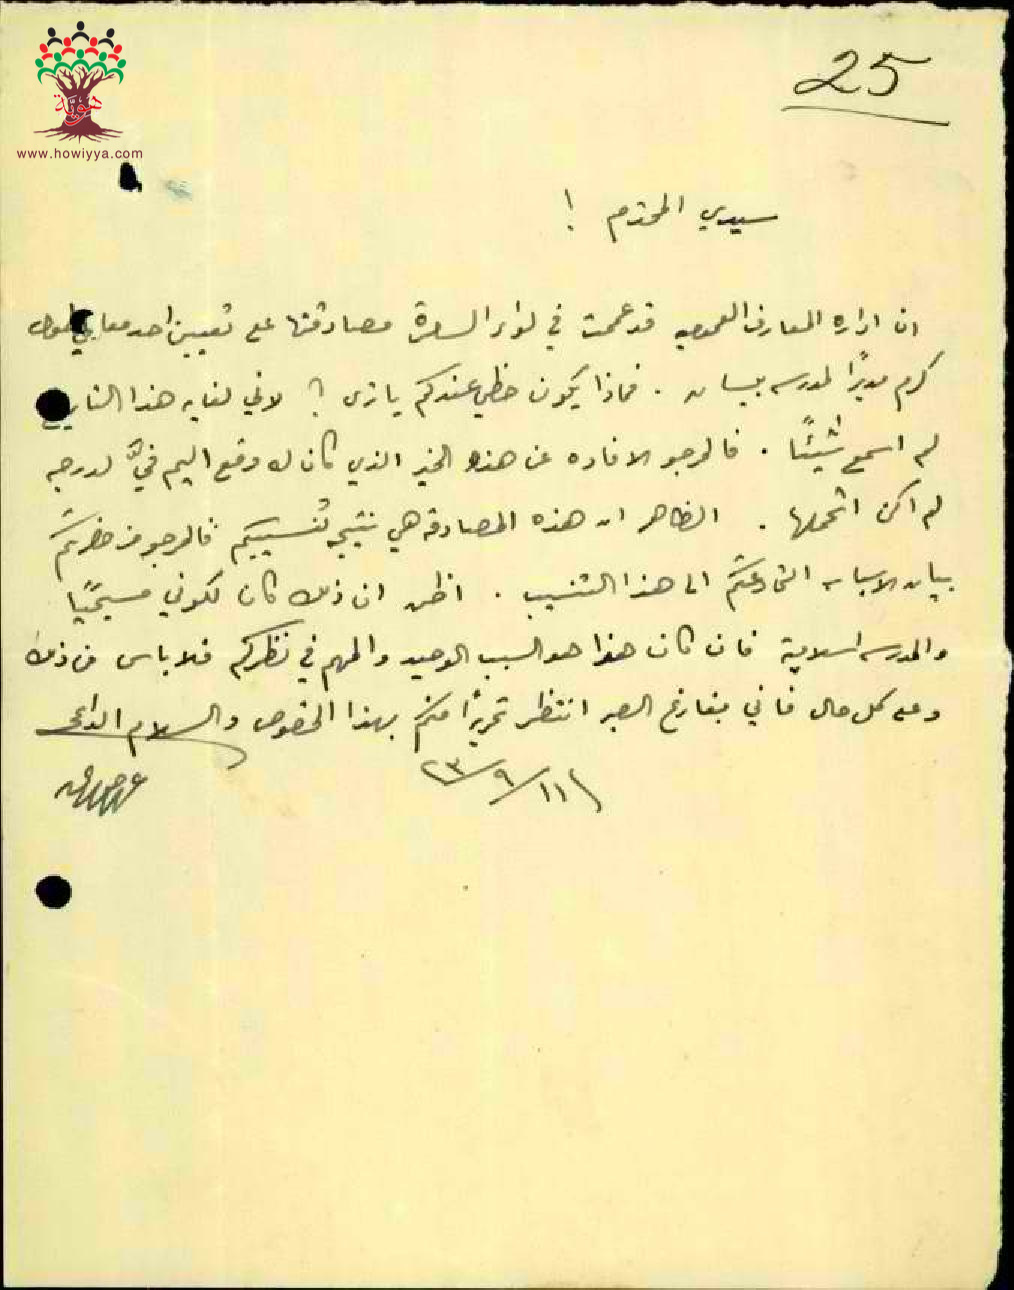 هوية
www.howiyya.com
25
سيدي المحترم !
ان اداره المعارف العموميه قد عممت في لواء السامرة مصادقتها على تعيين احد معلمي طول
كرم مديرًا لمدرسه بيسان . فماذا يكون حظي عندكم يا ترى ؟ لاني لغايه هذا التاريخ
لم اسمع شيئًا . فالرجو الافاده عن هذه الخبر الذي كان له وقع اليم فيّ لدرجه
لم اكن اتحملها . الظاهر ان هذه المصادقه هي نتيجه تنسيبكم فالرجو من حضرتكم
بيان الاسباب التي دعتكم الى هذا التنسيب . اظن ان ذلك كان لكوني مسيحيًا
والمدرسه اسلامية فان كان هذا هو السبب الوحيد والمهم في نظركم فلا باس من ذلك
وعلى كل حال فاني بفارغ الصبر انتظر تحريرًا منكم بهذا الخصوص والسلام الداعي
٢٣/٩/١١